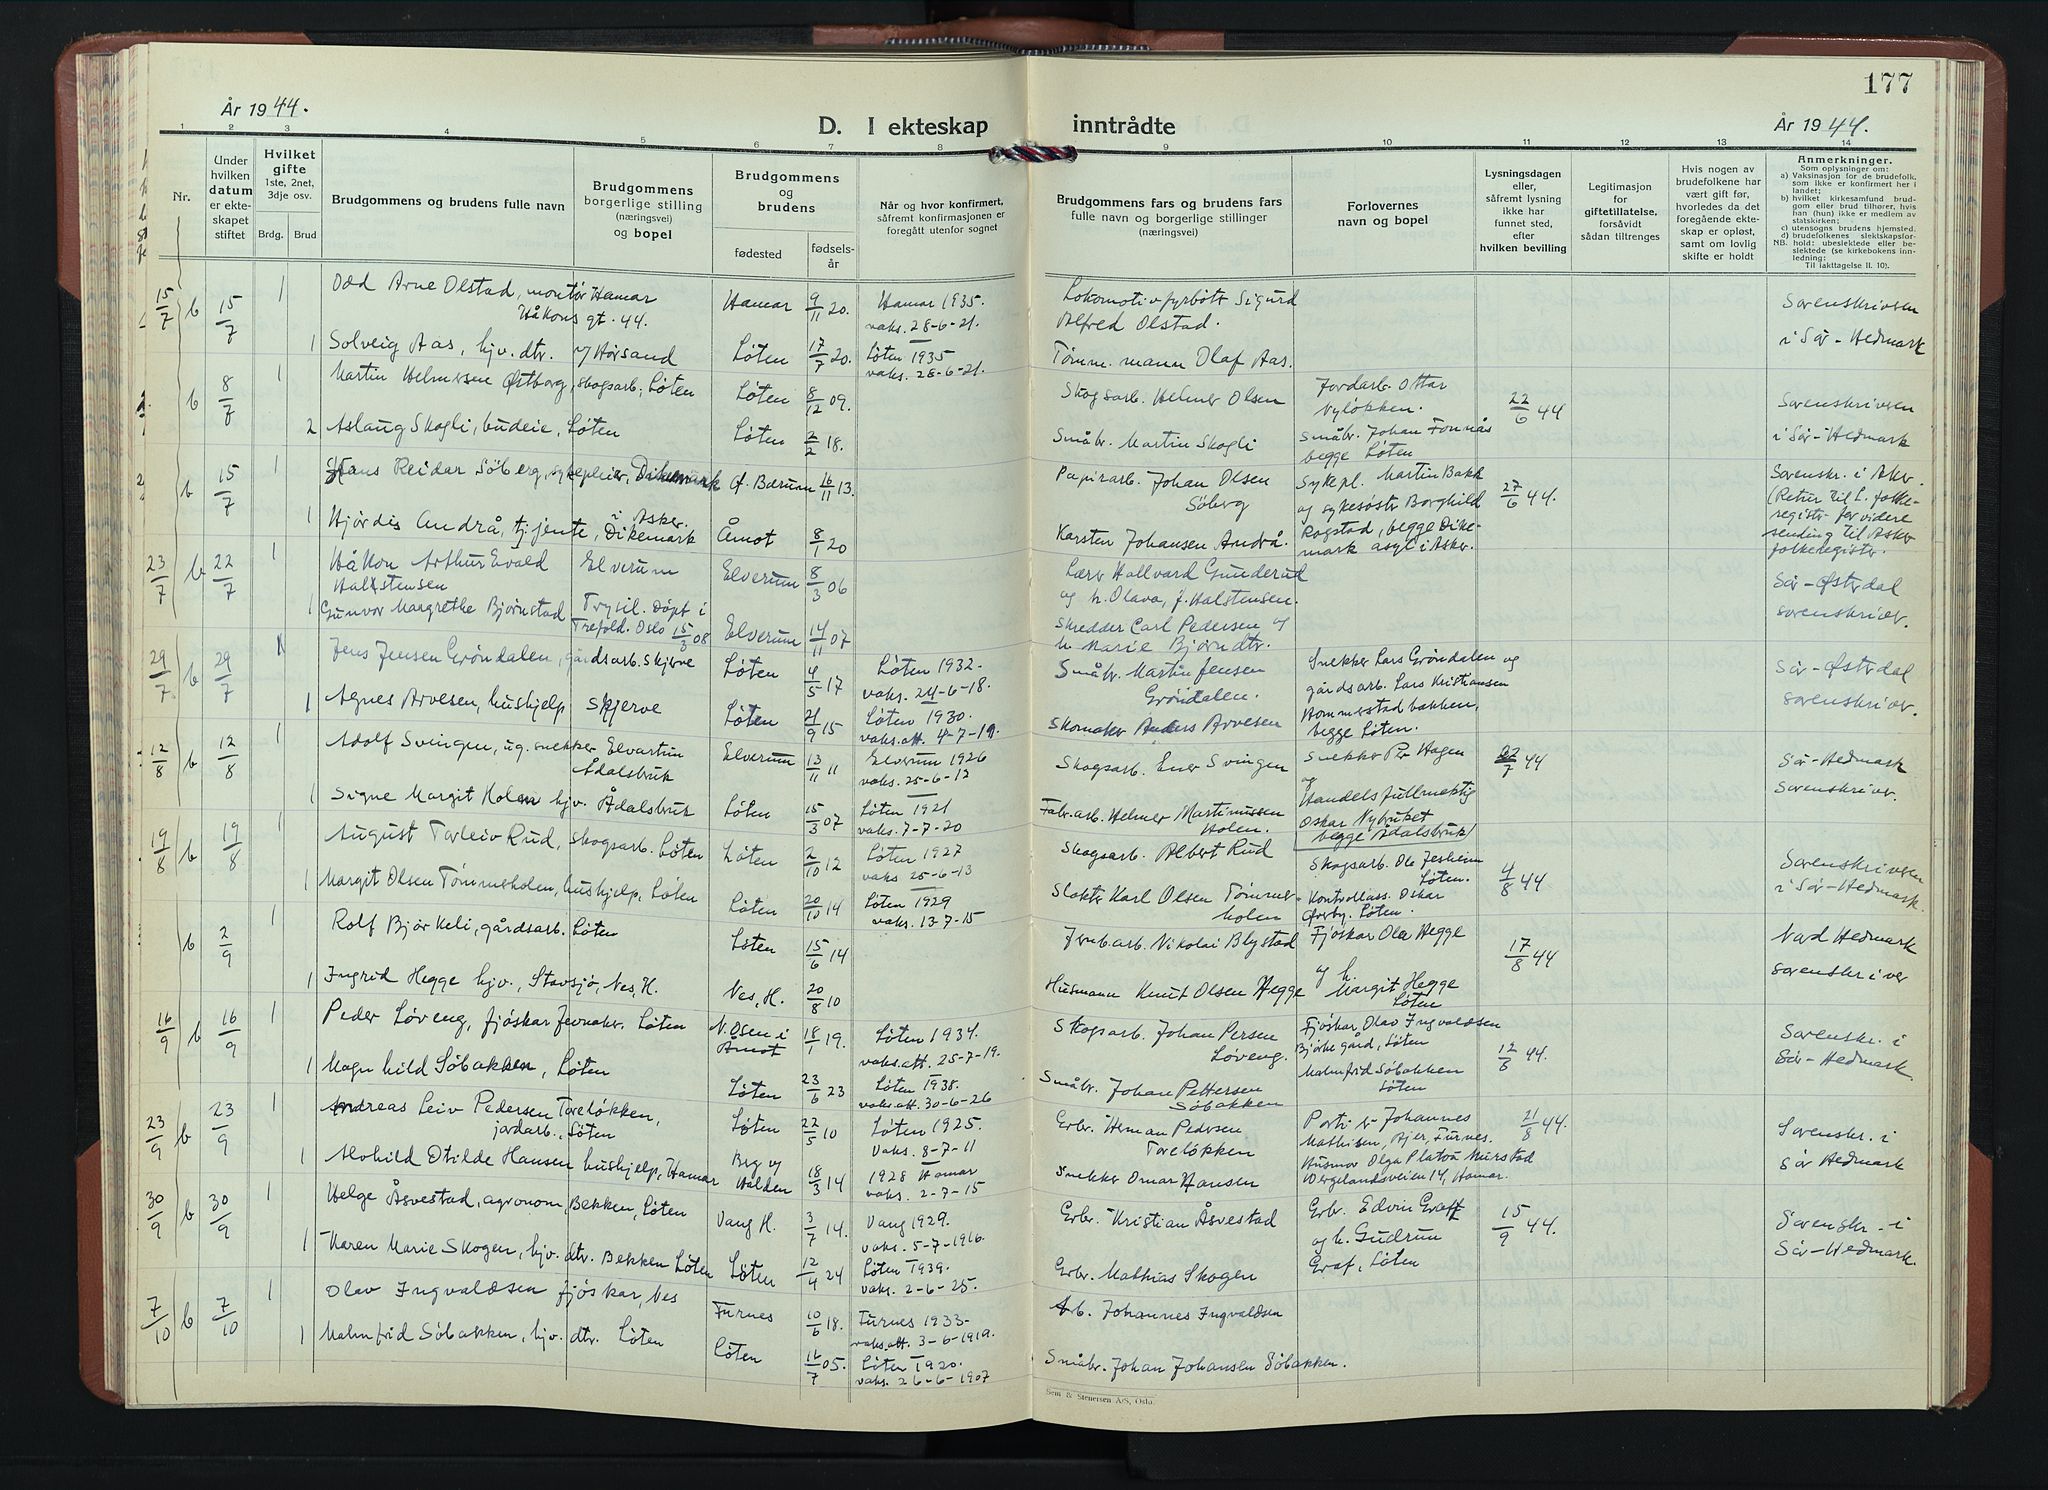 177
År 1944.
D. I ekteskap inntrådte
År 1944.
1 2 3 4 5 6 7 8 9 10 11 12 13 14
Nr.
Under hvilken datum er ekteskapet stiftet
Hvilket gifte 1ste, 2net, 3dje osv.
Brdg. Brud
Brudgommens og brudens fulle navn
Brudgommens borgerlige stilling (næringsvei) og bopel
Brudgommens og brudens
fødested
fødselsår
Når og hvor konfirmert, såfremt konfirmasjonen er foregått utenfor sognet
Brudgommens fars og brudens fars fulle navn og borgerlige stillinger (næringsvei)
Forlovernes navn og bopel
Lysningsdagen eller, såfremt lysning ikke har funnet sted, efter hvilken bevilling
Legitimasjon for giftetillatelse, forsåvidt sådan tiltrenges
Hvis nogen av brudefolkene har vært gift før, hvorledes da det foregående ekteskap er opløst, samt om lovlig skifte er holdt
Anmerkninger.
Som oplysninger om:
a) Vaksinasjon for de brudefolk, som ikke er konfirmert her i landet;
b) hvilket kirkesamfund brudgom eller brud tilhører, hvis han (hun) ikke er medlem av statskirken;
c) utensogns brudens hjemsted.
d) brudefolkenes slektskapsforhold: ubeslektede eller beslektede (se kirkebokens innledning:
NB. Til iakttagelse II. 10).
15/7 b 15/7 1 Odd Arne Olstad, montør Hamar Hamar 9/11 20. Hamar 1935. Lokomotivfyrbøter Sigurd Sorenskriven
Håkons gt. 44. vaks. 28-6-21. Alfred Olstad. i Sør-Hedmark
1 Solveig Aas, hjv. dtr. Løten 17/7 20. Løten 1935 vaks. 28-6-21. Tømm. mann Olaf Aas.
b 8/7 1 Martin Helmersen Østborg, skogsarb., Løten Løten 8/12 09. Skogsarb. Helmer Olsen Jordarb. Ottar Nyløkken. 22/6 44 Sorenskriven
2 Aslaug Skogli, budeie, Løten Løten 2/2 18. Småbr. Martin Skogli Småbr. Johan Fornås begge Løten i Sør-Hedmark
b 15/7 1 Hans Reidar Søberg, sykepleier, Dikemark Ø. Bærum 16/11 13. Papirarb. Johan Olsen Søberg Sykepl. Martin Bakk og sykesøster Borghild 27/6 44. Sorenskr. i Aker.
(Retur til L. folkeregistr for videre
1 Hjørdis Andrå, tjente, i Asker. Dikemark Åmot 8/1 20 Karsten Johansen Andrå. Rogstad, begge Dikemark asyl i Asker. sending til Asker folkeregister.
23/7 b 22/7 1 Håkon Arthur Evald Halstensen Elverum Elverum 8/3 06 Lærer Hallvard Gunderud og h. Olava, f. Halstensen. Sør-Østerdal
1 Gunvor Margrethe Bjørnstad Trysil. Døpt i Trefold. Oslo 15/3 08 Elverum 14/11 07 Skredder Carl Pedersen og h. Marie Bjørndtr. sorenskriver.
29/7 b 29/7 1 Jens Jensen Grøndalen, gårdsarb. Skjerve Løten 4/5 17 Løten 1932- vaks. 24-6-18. Småbr. Martin Jensen Grøndalen. Snekker Lars Grøndalen og gårdsarb. Lars Kristiansen Sør-Østerdal
1 Agnes Arvesen, hushjelp Skjerve Løten 21/9 15 Løten 1930. vaks. att. 4-7-19. Skomaker Anders Arvesen Hommerstadbakken, begge Løten. sorenskriver.
12/8 b 12/8 1 Adolf Svingen, ug. snekker Elvartun Ådalsbruk Elverum 13/11 11 Elverum 1926 vaks. 25-6-12 Skogsarb. Ener Svingen Snekker Per Hagen og 22/7 44 Sør-Hedmark
1 Signe Margit Holen hjv. Ådalsbruk Løten 15/3 07 Løten 1921 vaks. 7-7-20 Fabr.arb. Helmer Martinussen Holen. Handelsfullmektig Oskar Nybruket begge Ådalsbruk Sorenskriver.
19/8 b 19/8 1 August Torleiv Rud, skogsarb. Løten Løten 2/10 12 Løten 1927 vaks 25-6-13 Skogsarb. Albert Rud Skogsarb. Ole Jesheim Løten. 4/8 44 Sorenskriveren
1 Margit Olsen Tømmerholen, hushjelp, Løten Løten 20/10 14 Løten 1929 vaks. 13-7-15 Slakter Karl Olsen Tømmerholen Kontrollass. Oskar Ørerby. Løten. i Sør-Hedmark.
b 2/9 1 Rolf Bjørkeli, gårdsarb. Løten Løten 15/6 14 Jernb.arb. Nikolai Blystad Fjøskar Ole Hegge 17/8 44 Nord Hedmark
1 Ingrid Hegge hjv., Stavsjø, Nes, H. Nes, H. 20/8 10 Husmann Knut Olsen Hegge og h. Margit Hegge Løten sorenskriver
16/9 b 16/9 1 Peder Løveng, fjøskar Jernaker. Løten N. Osen i Åmot 18/1 19. Løten 1934. vaks. att. 25-7-19. Skogsarb. Johan Persen Løveng. Fjøskar Olav Ingvaldsen Bjørke gård, Løten 12/8 44. Sorenskr. i
1 Magnhild Søbakken, Løten Løten 23/6 23 Løten 1938. vaks. att. 30-6-26 Småbr. Johan Pettersen Søbakken Malmfrid Søbakken Løten Sør-Hedmark.
23/9 b 23/9 1 Andreas Leiv Pedersen Toreløkken, jordarb., Løten Løten 22/5 10 Løten 1925. Vaks. 8-7-11 Grbr. Herman Pedersen Toreløkken Johannes Mathisen, Ajer, Furnes. 21/8 44. Sorenskr. i
1 Alvhild Otilde Hansen hushjelp, Hamar Halden 18/3 14 1928 Hamar vaks. 2-7-15 Snekker Omar Hansen Husmor Olga Platou Murstad Wergelandsveien 14, Hamar. Sør Hedmark
30/9 b 30/9 1 Helge Åsvestad, agronom, Bekken, Løten Vang H. 3/7 14. Vang 1929. vaks. 5-7-1916. Grbr. Kristian Åsvestad Grbr. Edvin Graff og h. Gudrun 15/9 44. Sorenskr. i
1 Karen Marie Skogen, hjv. dtr. Bekken Løten Løten 12/4 24 Løten 1939. vaks. 2-6-25. Grbr. Mathias Skogen Graf, Løten Sør-Hedmark.
7/10 b 7/10 1 Olav Ingvaldsen fjøskar, Nes Furnes 10/6 18. Furnes 1933- vaks. att. 3-6-1919. Arb. Johannes Ingvaldsen
1 Malmfrid Søbakken, hjv. dtr. Løten Løten 16/7 05. Løten 1920. vaks. 26-6-1907 Småbr. Johan Johansen Søbakken.
Sem & Stenersen A/S, Oslo.